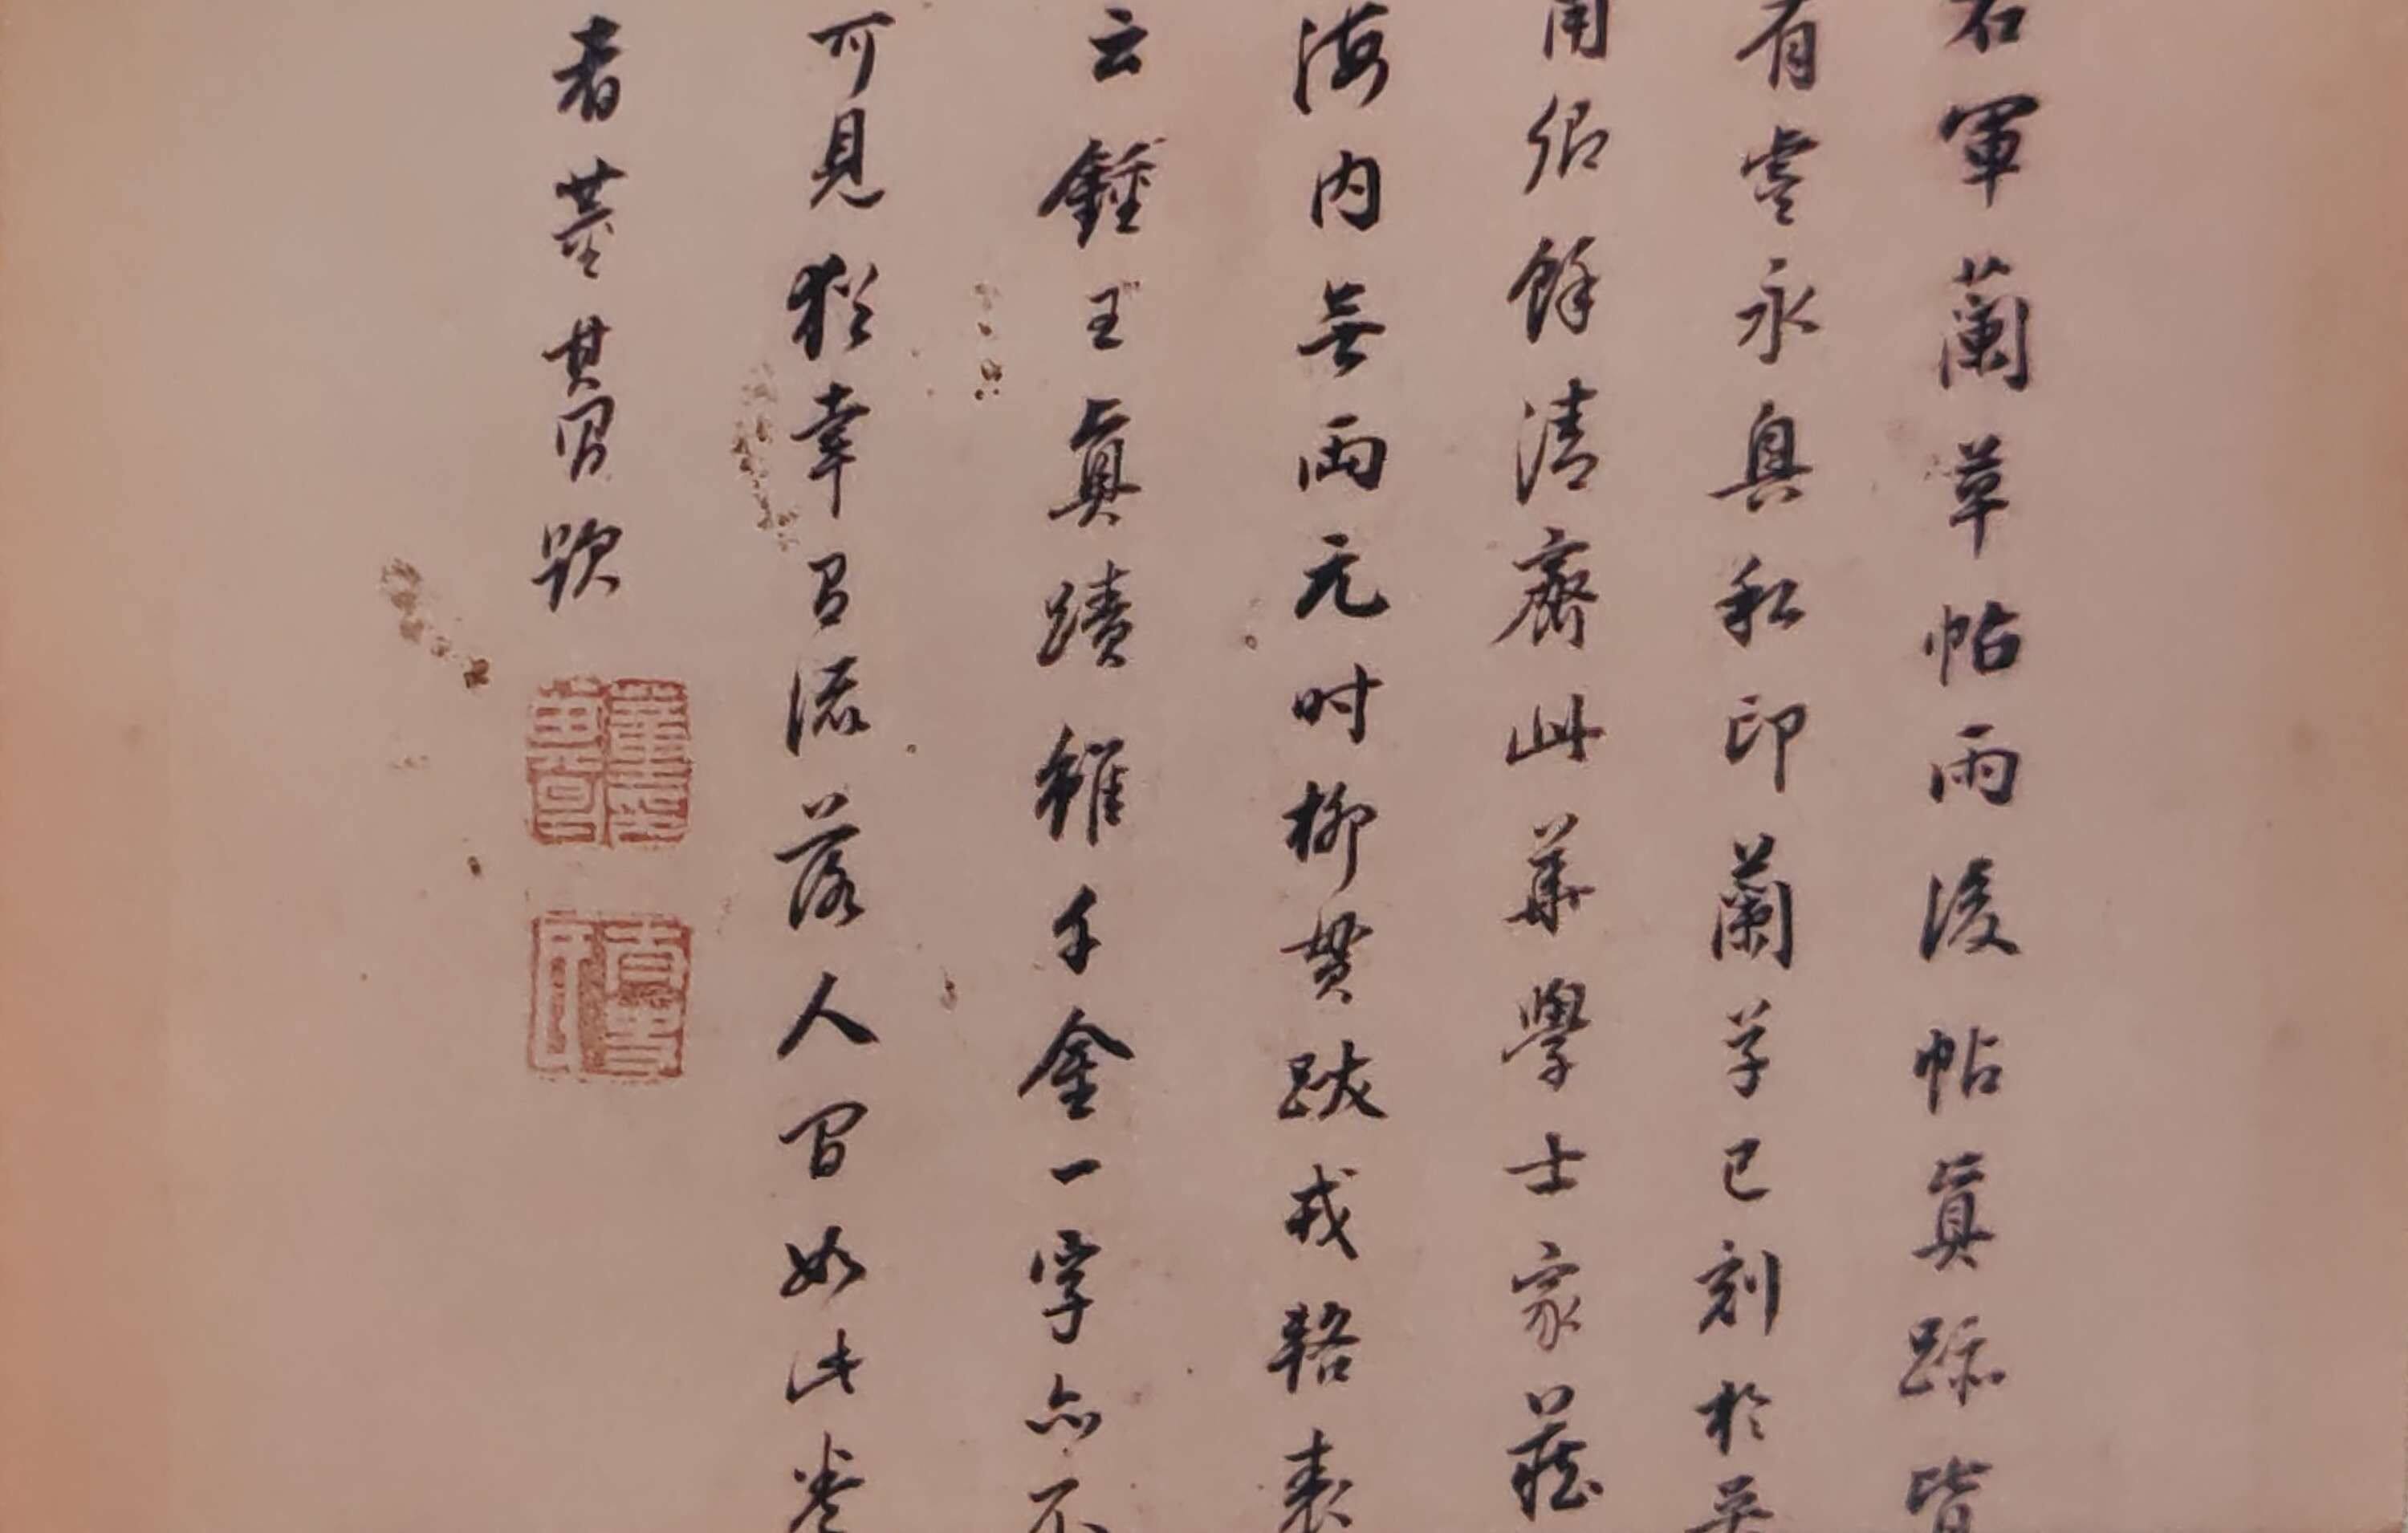 右軍蘭草帖雨後帖真跡皆
有虞永興私印蘭草已刻於吳
用卿餘清齋此華學士家藏
海內無兩元時柳貫跋戎輅表
云鍾王真蹟雖千金一字亦不
可見猶幸有流落人間如此卷
者董其昌題